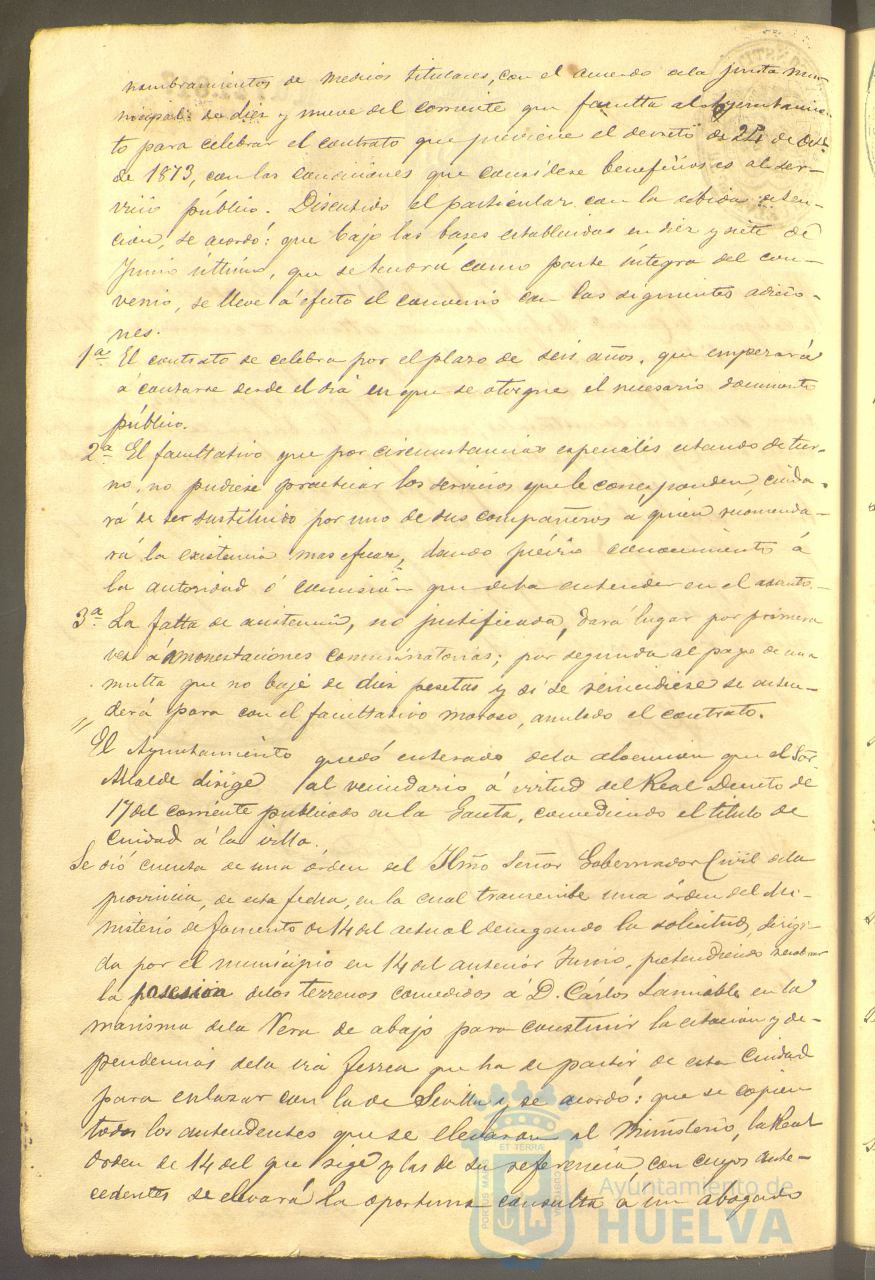 nombramientos de medicos titulares, con el acuerdo dela junta mu-
nicipal de diez y nueve del corriente que faculta al Ayuntamien-
to para celebrar el contrato que previene el decreto de 24 de Octe
de 1873, con las condiciones que considere beneficiosas al ser-
vicio público. Discutido el particular con la debida aten-
cion, se acordó: que bajo las bases establecidas en diez y siete de
Junio último, que se tendrá como parte íntegra del con-
venio, se lleve á efecto el convenio con las siguientes adicio-
nes.
1ª El contrato se celebra por el plazo de seis años, que empezará
á contarse desde el dia en que se otorgue el necesario documento
público.
2ª El facultativo que por circunstancias especiales estando de tur-
no, no pudiese practicar los servicios que le corresponden cuida-
rá de ser sustituido por uno de sus compañeros á quien recomenda-
rá la existencia mas eficaz, dando prévio conocimiento á
la autoridad ó comision que deba entender en el asunto.
3ª La falta de asistencia, no justificada, dará lugar por primera
vez á amonestaciones comminatorias; por segunda al pago de una
multa que no baje de diez pesetas y si se reincidiese se enten-
derá para con el facultativo moroso, anulado el contrato.
" El Ayuntamiento quedó enterado dela alocucion que el Sor
Alcalde dirige al vecindario á virtud del Real Decreto de
17 del corriente publicado en la Gaceta, concediendo el titulo de
Ciudad á la villa.
Se dió cuenta de una órden del Ilmo Señor Gobernador Civil dela
provincia, de esta fecha, en la cual transcribe una órden del Mi-
nisterio de fomento de 14 del actual denegando la solicitud, dirigi-
da por el municipio en 14 del anterior Junio, pretendiendo recobrar
la posesion delos terrenos concedidos á D. Cárlos en la
marisma dela Vera de abajo para construir la estacion y de-
pendencias dela via ferrea que ha de partir de esta Ciudad
para enlazar con la de Sevilla y se acordó: que se copien
todos los antecedentes que se llevaron al Ministerio, la Real
orden de 14 del que rige y las de su referencia, con cuyos ante-
cedentes se elevará la oportuna consulta a un abogado
PORTUS MARIS ET TERRÆ CUSTODIA
Ayuntamiento de
HUELVA